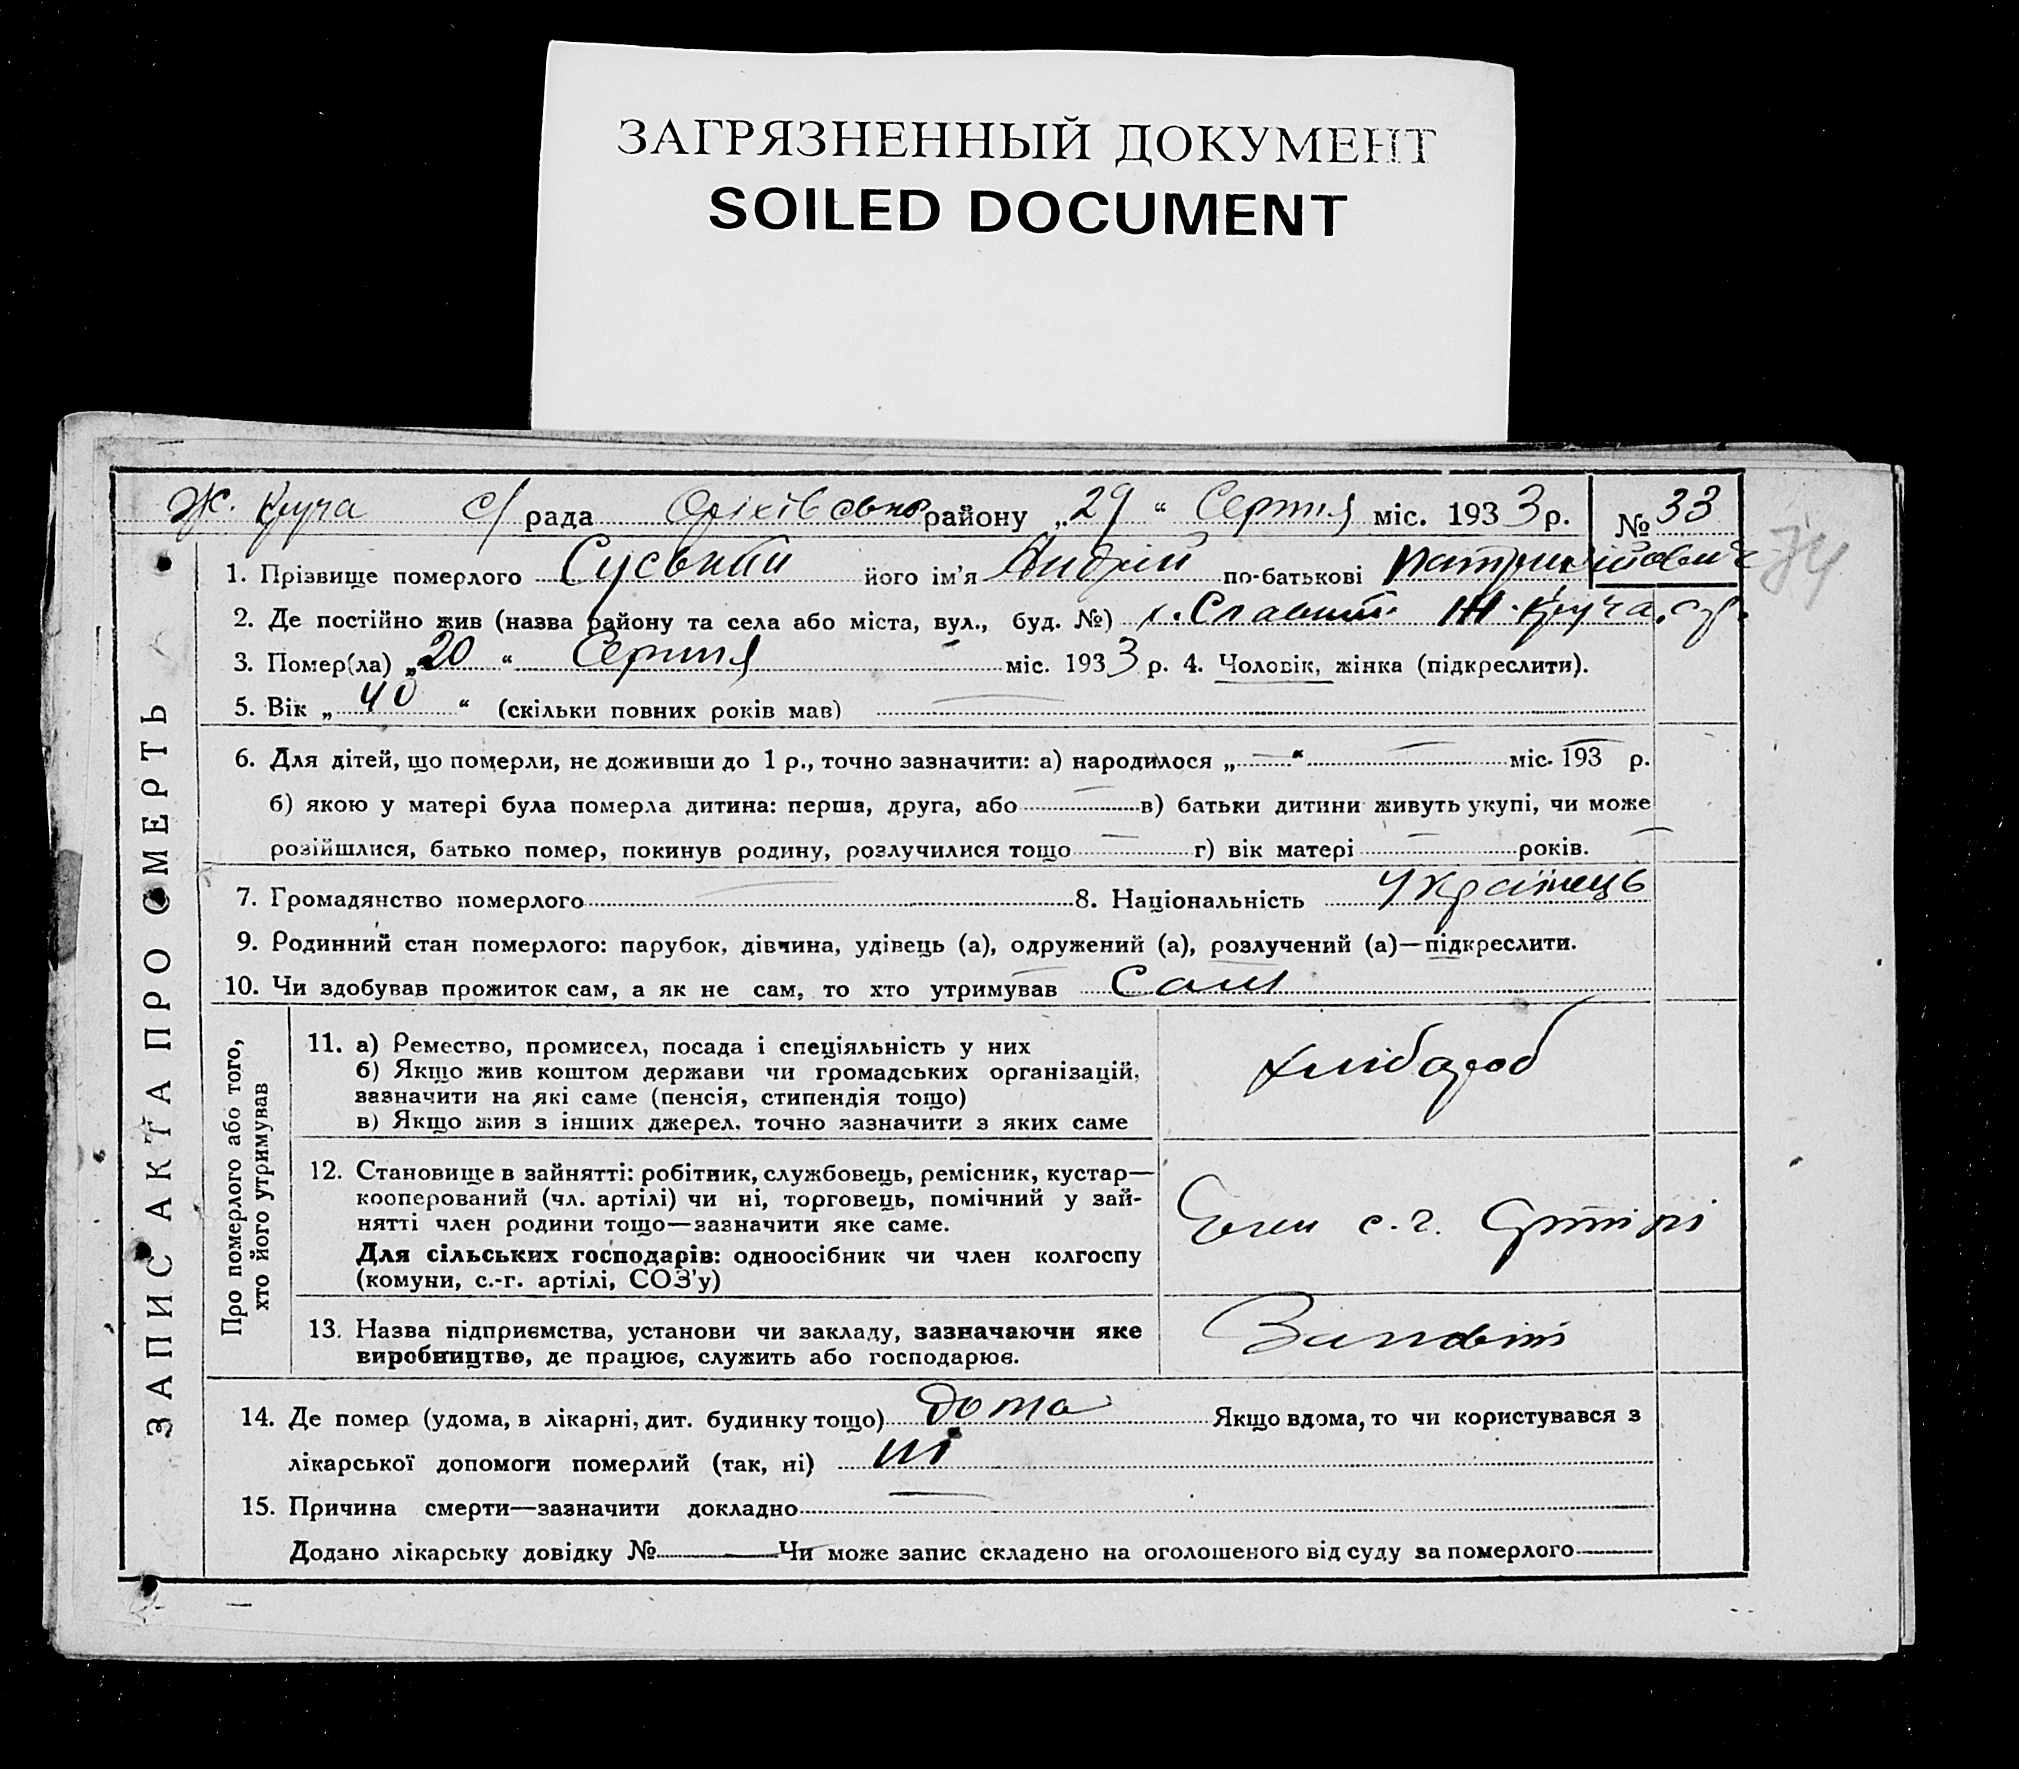 ЗАГРЯЗНЕННЫЙ ДОКУМЕНТ
SOILED DOCUMENT
Ж. Круча с/рада Оріхівсько району „29“ Серпня міс. 1933 р. № 33
74
1. Прізвище померлого Суський його ім'я Андрій по-батькові
2. Де постійно жив (назва району та села або міста, вул., буд. №) х. Ж. Круча.
3. Помер(ла) „20“ Серпня міс. 1933 р. 4. Чоловік, жінка (підкреслити).
5. Вік „40“ (скільки повних років мав)
6. Для дітей, що померли, не доживши до 1 р., точно зазначити: а) народилося „ “ міс. 193 р.
б) якою у матері була померла дитина: перша, друга, або в) батьки дитини живуть укупі, чи може
розійшлися, батько помер, покинув родину, розлучилися тощо г) вік матері років.
7. Громадянство померлого 8. Національність Українець
9. Родинний стан померлого: парубок, дівчина, удівець (а), одружений (а), розлучений (а)—підкреслити.
10. Чи здобував прожиток сам, а як не сам, то хто утримував Сам
ЗАПИС АКТА ПРО СМЕРТЬ
Про померлого або того,
хто його утримував
11. а) Ремество, промисел, посада і спеціяльність у них
б) Якщо жив коштом держави чи громадських організацій,
зазначити на які саме (пенсія, стипендія тощо)
в) Якщо жив з інших джерел, точно зазначити з яких саме
хлібороб
12. Становище в зайнятті: робітник, службовець, ремісник, кустар—
кооперований (чл. артілі) чи ні, торговець, помічний у зай-
нятті член родини тощо—зазначити яке саме.
Для сільських господарів: одноосібник чи член колгоспу
(комуни, с.-г. артілі, СОЗ'у)
Член с.г. Артілі
13. Назва підприємства, установи чи закладу, зазначаючи яке
виробництво, де працює, служить або господарює.
14. Де помер (удома, в лікарні, дит. будинку тощо) дома Якщо вдома, то чи користувався з
лікарської допомоги померлий (так, ні) ні
15. Причина смерти—зазначити докладно
Додано лікарську довідку № Чи може запис складено на оголошеного від суду за померлого